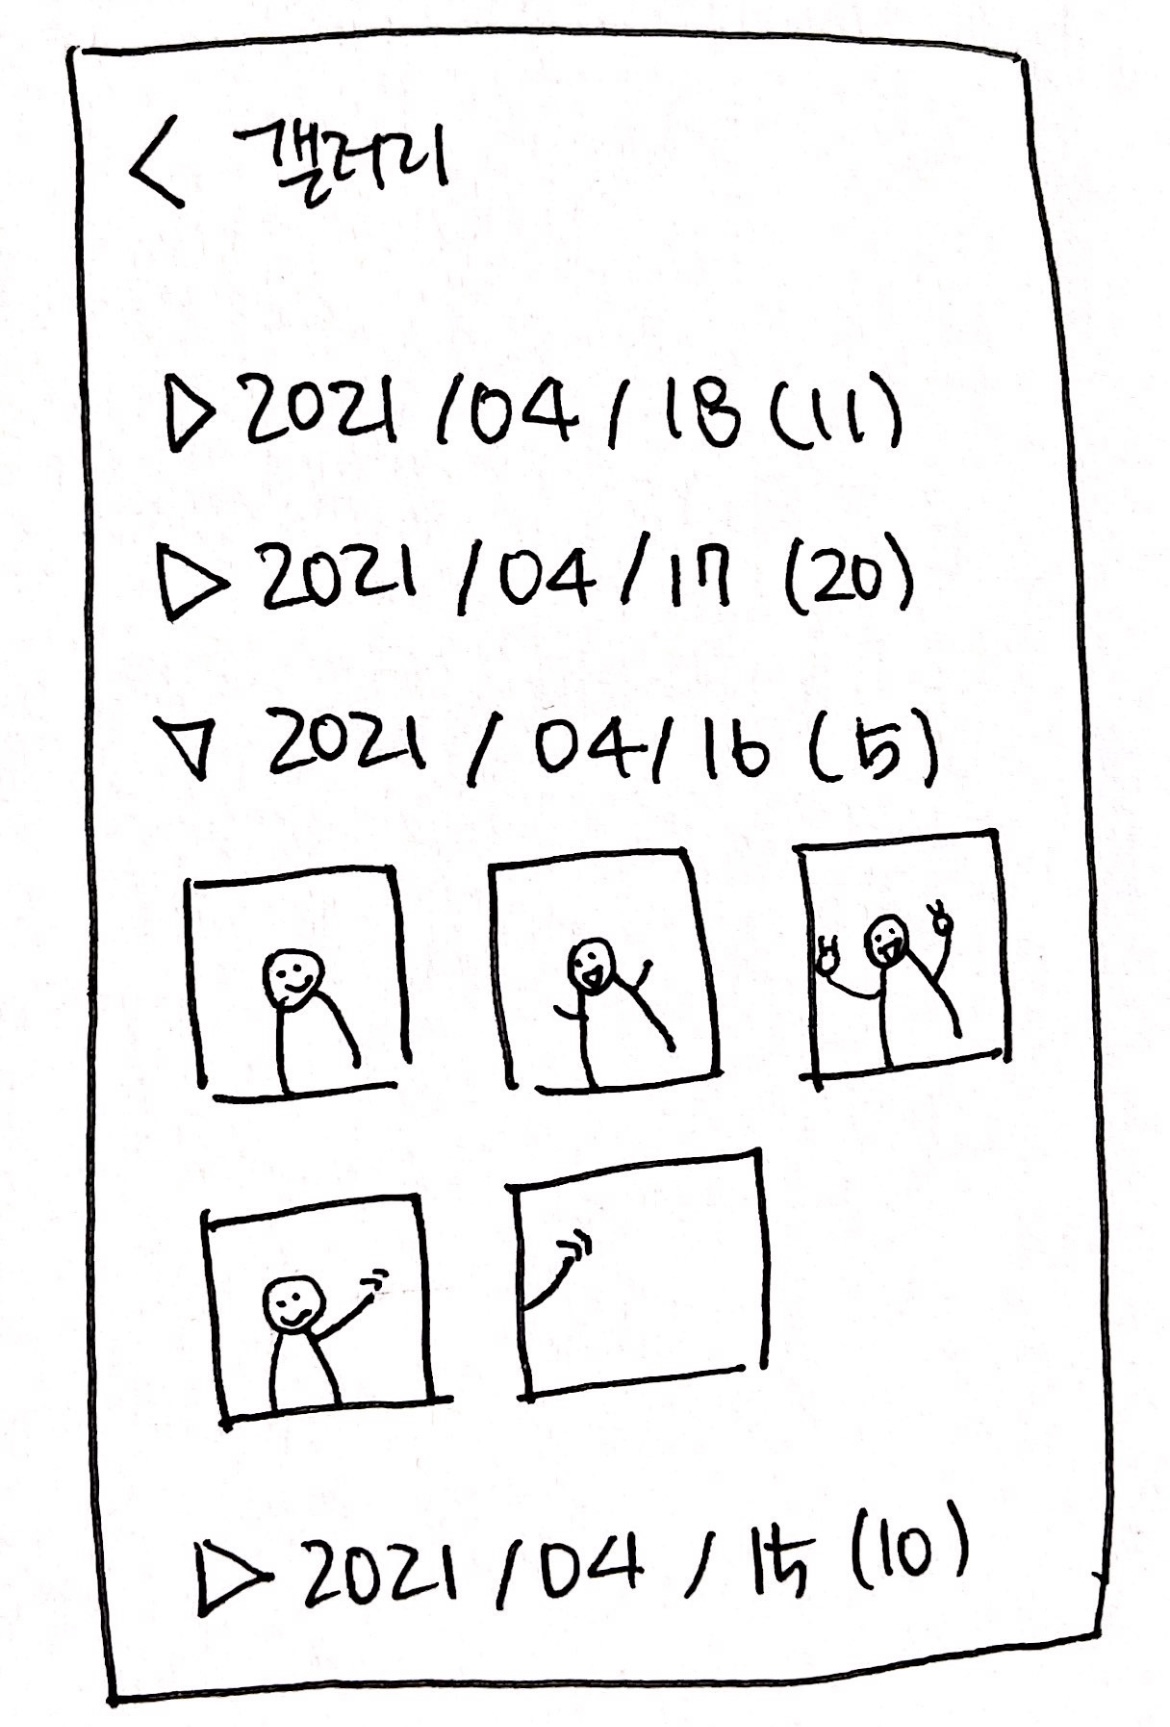 < 갤러리
▷ 2021/04/18 (11)
▷ 2021/04/17 (20)
▽ 2021/04/16 (5)
▷ 2021/04/15 (10)